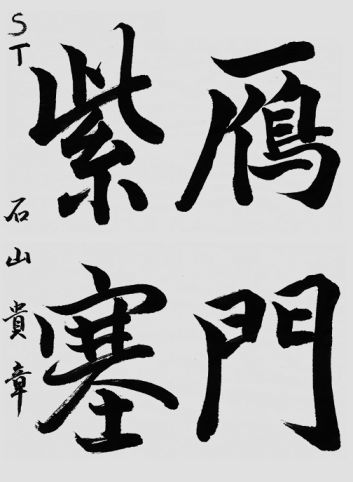 鴈門
紫塞
ST 石山貴章